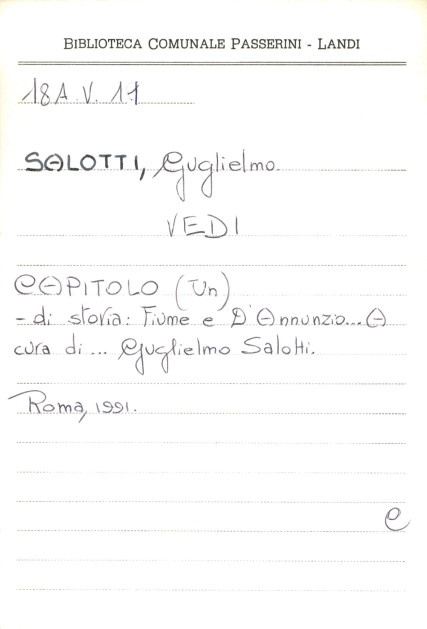 BIBLIOTECA COMUNALE PASSERINI - LANDI
18A.V.11
SALOTTI, Guglielmo.
VEDI
CAPITOLO (Un)
- di storia: Fiume e D'Annunzio... A
cura di... Guglielmo Salotti.
Roma, 1991.
e